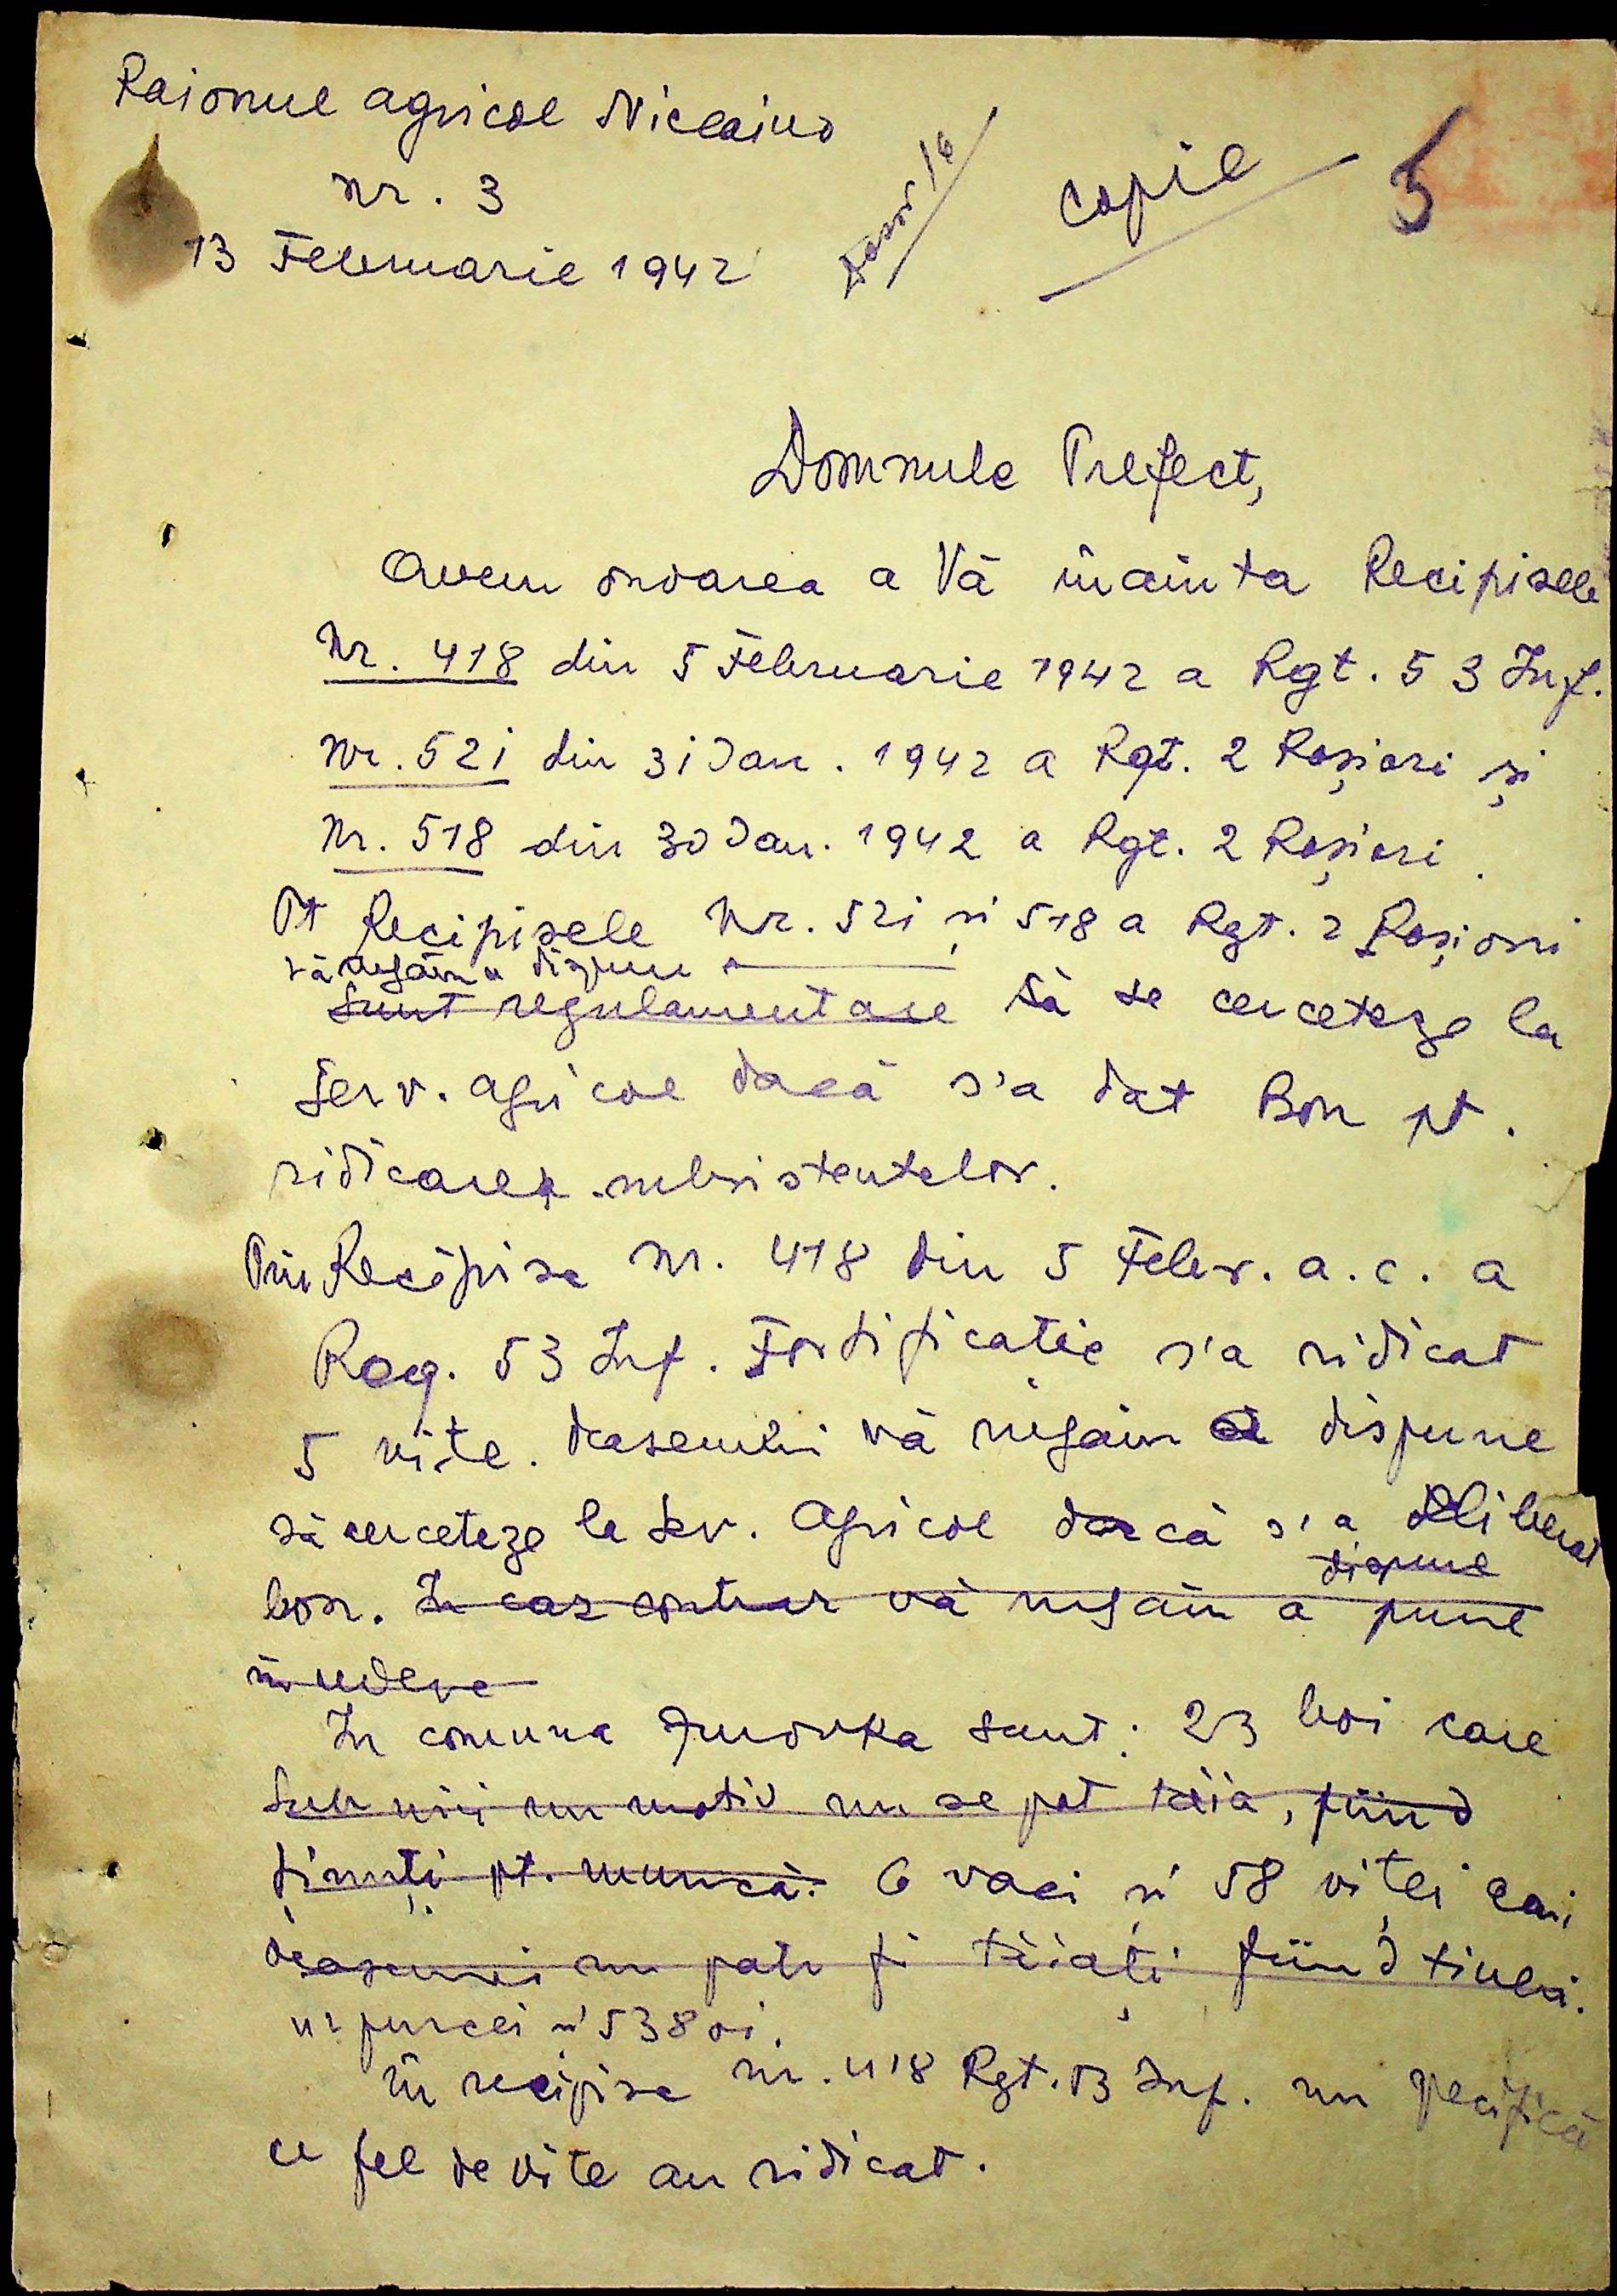 Raionul agricol Niclaiuo
nr. 3
13 Februarie 1942
copie
5
Domnule Prefect,
Avem onoarea a Vă înainta Recipisele
Nr. 418 din 5 Februarie 1942 a Rgt. 53 Inf.
Nr. 521 din 31 Ian. 1942 a Rgt. 2 Roșiori și
Nr. 518 din 30 Ian. 1942 a Rgt. 2 Roșiori.
Pt Recipisele Nr. 521 și 518 a Rgt. 2 Roșiori
vă rugăm a dispune
sunt regulamentare să se cerceteze la
Serv. agricol dacă s'a dat Bon pt.
ridicarea subsistentelor.
Prin Recipisa Nr. 418 din 5 Febr. a.c. a
Reg. 53 Inf. Fortificație s'a ridicat
5 vite. deasemeni vă rugăm a dispune
să cerceteze la Serv. Agricol dacă s'a eliberat
dispune
bon. In caz contrar vă rugăm a pune
în vedere
In comuna sunt: 23 boi care
sub nici un motiv nu se pot tăia, fiind
ținuți pt. muncă. 6 vaci și 58 viței cari
deasemeni nu pot fi tăiați fiind tineri.
purcei și 538 oi.
În recipisa nr. 418 Rgt. 53 Inf. nu specifică
ce fel de vite au ridicat.